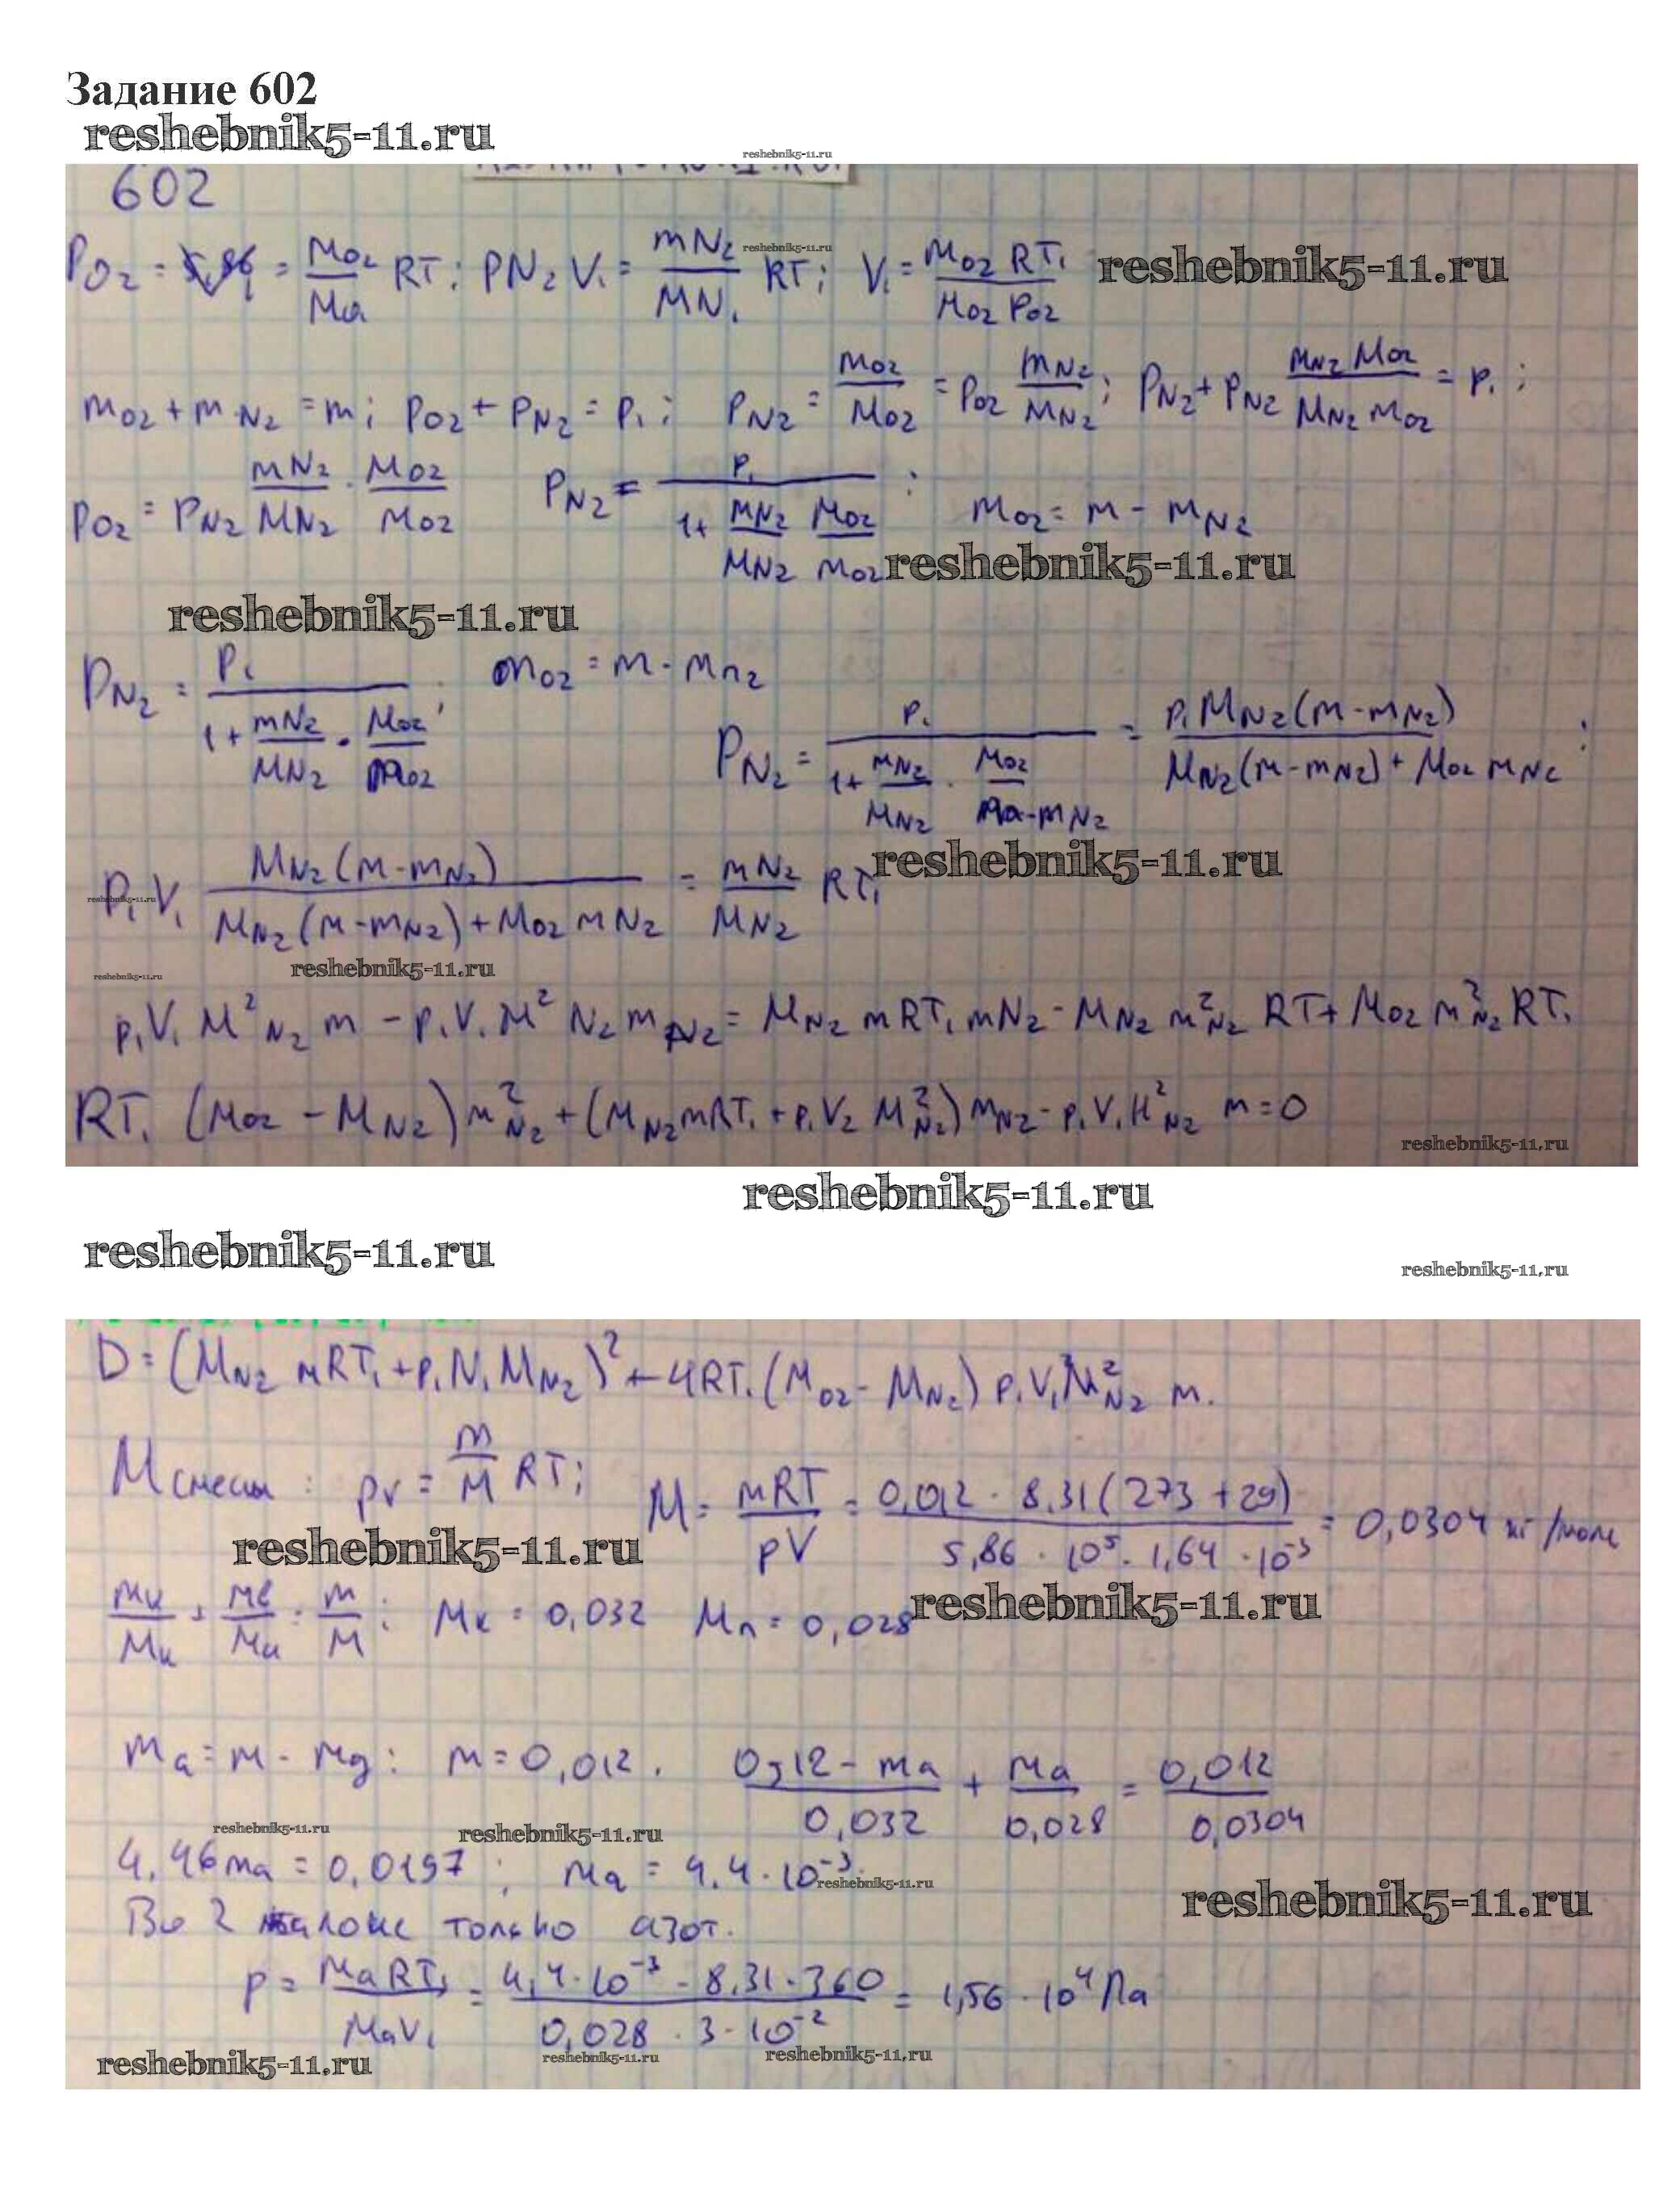 Задание 602
reshebnik5-11.ru
reshebnik5-11.ru
602
P O2 = = M O2 / Ma RT; PN2 V1 = mN2 / MN1 RT; V1 = M O2 RT1 / M O2 P O2
reshebnik5-11.ru
reshebnik5-11.ru
m O2 + m N2 = m; p O2 + p N2 = p1; p N2 = m O2 / M O2 = p O2 m N2 / M N2; p N2 + p N2 m N2 M O2 / M N2 m O2 = p1;
p O2 = p N2 m N2 / M N2 · M O2 / m O2 p N2 = p1 / 1+ m N2 / M N2 M O2 / m O2; m O2 = m - m N2
reshebnik5-11.ru
reshebnik5-11.ru
P N2 = P1 / 1+ m N2 / M N2 · M O2 / m O2; m O2 = m - m n2
P N2 = P1 / 1+ m N2 / M N2 · M O2 / m - m N2 = p1 M N2 (m-m N2) / M N2 (m-m N2) + M O2 m N2;
reshebnik5-11.ru
P1 V1 M N2 (m-m N2) / M N2 (m-m N2) + M O2 m N2 = m N2 / M N2 RT1
reshebnik5-11.ru
reshebnik5-11.ru
reshebnik5-11.ru
p1 V1 M² N2 m - p1 V1 M² N2 m N2 = M N2 m RT1 m N2 - M N2 m² N2 RT + M O2 m² N2 RT1
RT1 (M O2 - M N2) m² N2 + (M N2 m RT1 + p1 V2 M² N2) m N2 - p1 V1 M² N2 m = 0
reshebnik5-11.ru
reshebnik5-11.ru
reshebnik5-11.ru
reshebnik5-11.ru
D = (M N2 m RT1 + p1 N1 M N2)² + 4RT1 (M O2 - M N2) p1 V1 M² N2 m.
M смеси: pV = m / M RT; M = mRT / pV = 0,012 · 8,31 (273 + 29) / 5,86 · 10⁵ · 1,64 · 10⁻³ = 0,0304 кг/моль
reshebnik5-11.ru
mк / Mк + mв / Mа = m / M; Mк = 0,032 Mп = 0,028
reshebnik5-11.ru
ma = m - mg: m = 0,012. 0,12 - ma / 0,032 + ma / 0,028 = 0,012 / 0,0304
reshebnik5-11.ru
reshebnik5-11.ru
4,46 ma = 0,0197; ma = 4,4 · 10⁻³
reshebnik5-11.ru
reshebnik5-11.ru
Во 2 только азот.
p = ma RT1 / Ma V1 = 4,4 · 10⁻³ - 8,31 · 360 / 0,028 · 3 · 10⁻² = 1,56 · 10⁴ Па
reshebnik5-11.ru
reshebnik5-11.ru
reshebnik5-11.ru